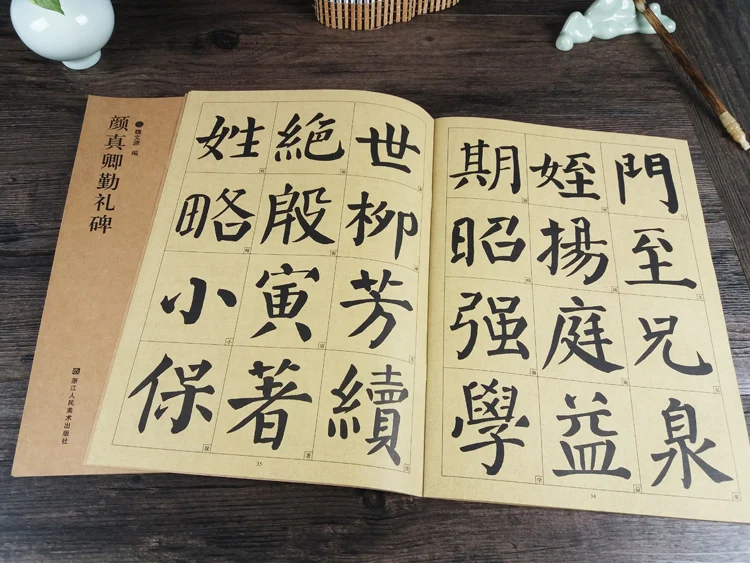 颜真卿勤礼碑
魏文源 编
浙江人民美术出版社
門至兄泉
姪揚庭益
期昭强學
34
世柳芳續
絶殷寅著
姓略小保
35